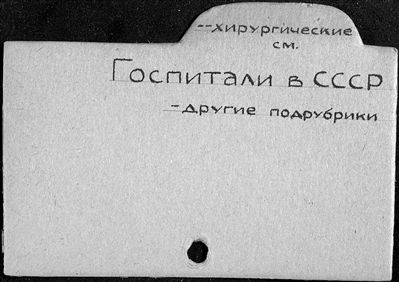 --хирургические
см.
Госпитали в СССР
-другие подрубрики